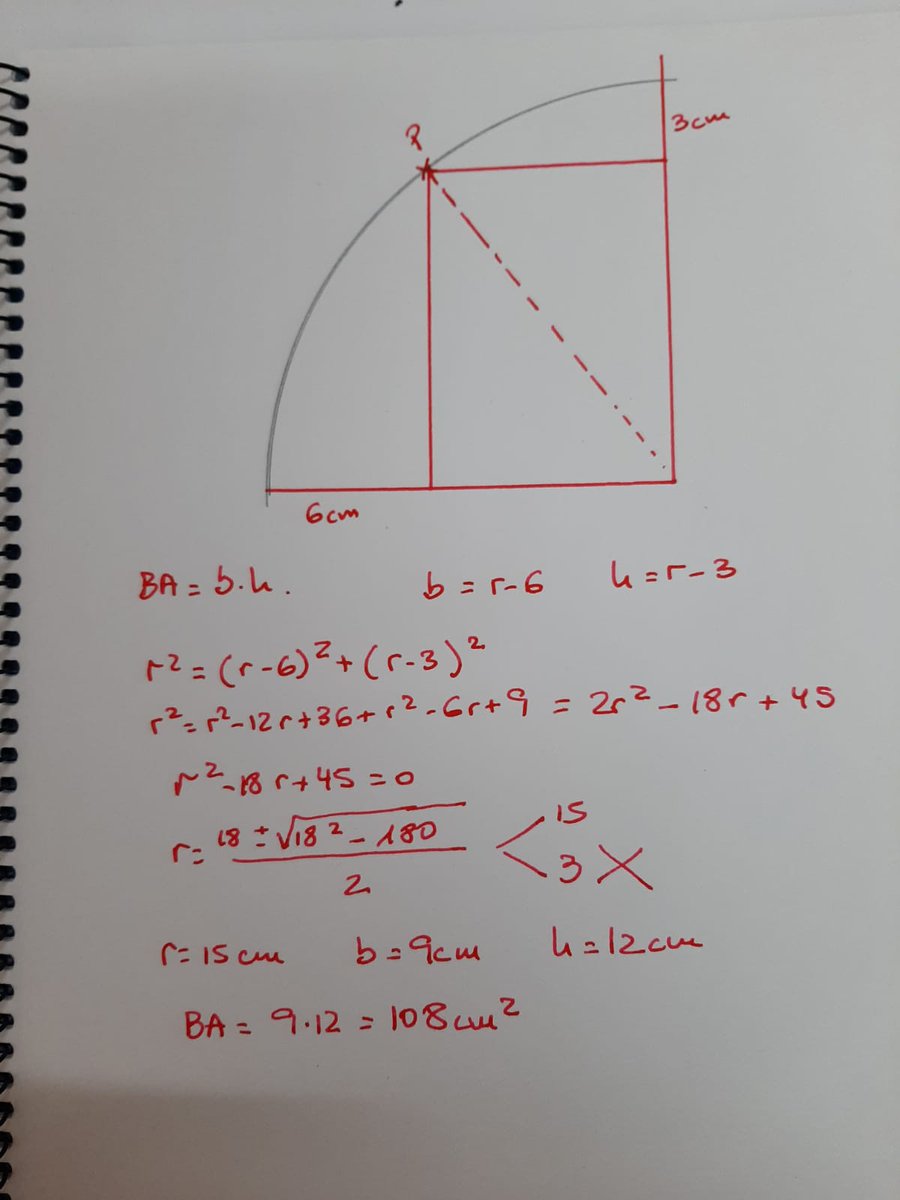 P
3cm
6cm
BA = b.h. b = r-6 h = r-3
r² = (r-6)² + (r-3)²
r² = r²-12r+36+r²-6r+9 = 2r²-18r+45
r²-18r+45 = 0
r = (18 ± √(18² - 180))/2 < 15
3 X
r = 15cm b = 9cm h = 12cm
BA = 9·12 = 108cm²